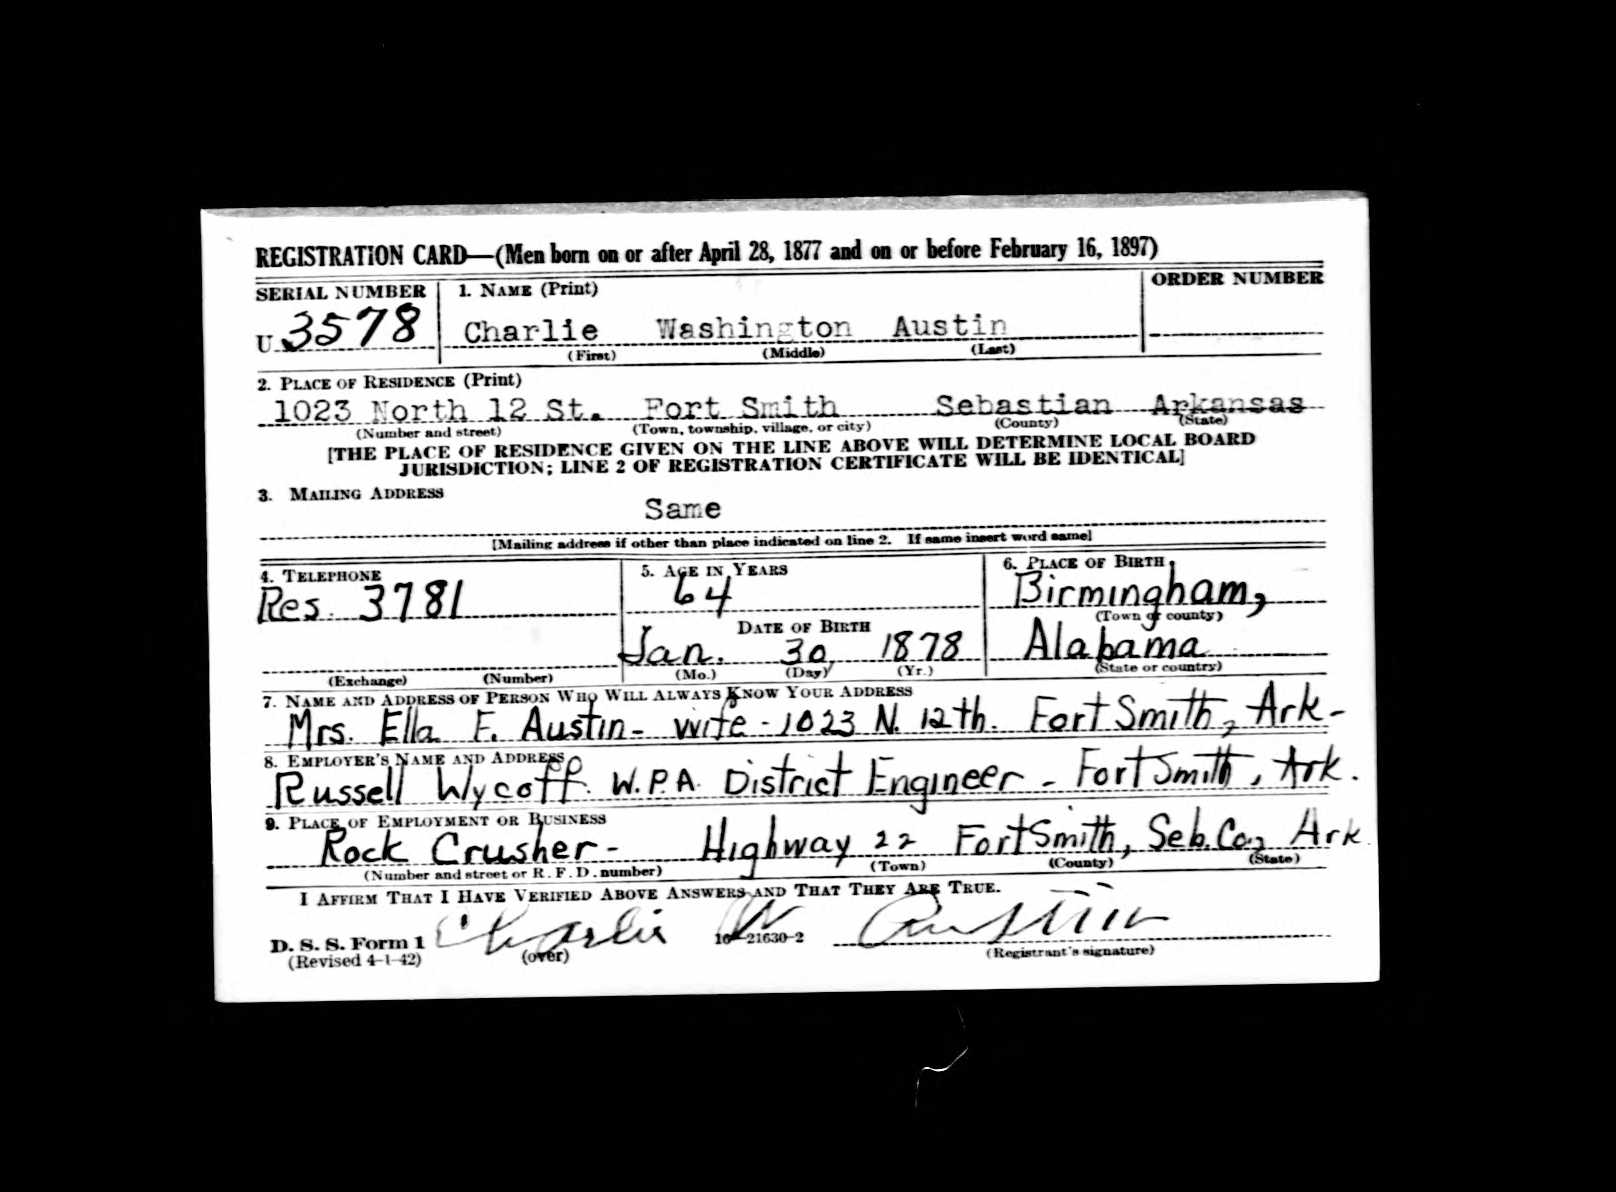 REGISTRATION CARD—(Men born on or after April 28, 1877 and on or before February 16, 1897)
SERIAL NUMBER 1. NAME (Print) ORDER NUMBER
U 3578 Charlie Washington Austin
(First) (Middle) (Last)
2. PLACE OF RESIDENCE (Print)
1023 North 12 St. Fort Smith Sebastian Arkansas
(Number and street) (Town, township, village, or city) (County) (State)
[THE PLACE OF RESIDENCE GIVEN ON THE LINE ABOVE WILL DETERMINE LOCAL BOARD
JURISDICTION; LINE 2 OF REGISTRATION CERTIFICATE WILL BE IDENTICAL]
3. MAILING ADDRESS
Same
[Mailing address if other than place indicated on line 2. If same insert word same]
4. TELEPHONE 5. AGE IN YEARS 6. PLACE OF BIRTH
Res. 3781 64 Birmingham,
(Town or county)
DATE OF BIRTH
Jan. 30 1878 Alabama
(Exchange) (Number) (Mo.) (Day) (Yr.) (State or country)
7. NAME AND ADDRESS OF PERSON WHO WILL ALWAYS KNOW YOUR ADDRESS
Mrs. Ella F. Austin - wife - 1023 N. 12th. Fort Smith, Ark-
8. EMPLOYER'S NAME AND ADDRESS
Russell Wycoff. W.P.A. District Engineer - Fort Smith, Ark.
9. PLACE OF EMPLOYMENT OR BUSINESS
Rock Crusher - Highway 22 Fort Smith, Seb. Co., Ark.
(Number and street or R. F. D. number) (Town) (County) (State)
I AFFIRM THAT I HAVE VERIFIED ABOVE ANSWERS AND THAT THEY ARE TRUE.
Charlie W Austin
D. S. S. Form 1 16—21630-2
(Revised 4-1-42) (over) (Registrant's signature)